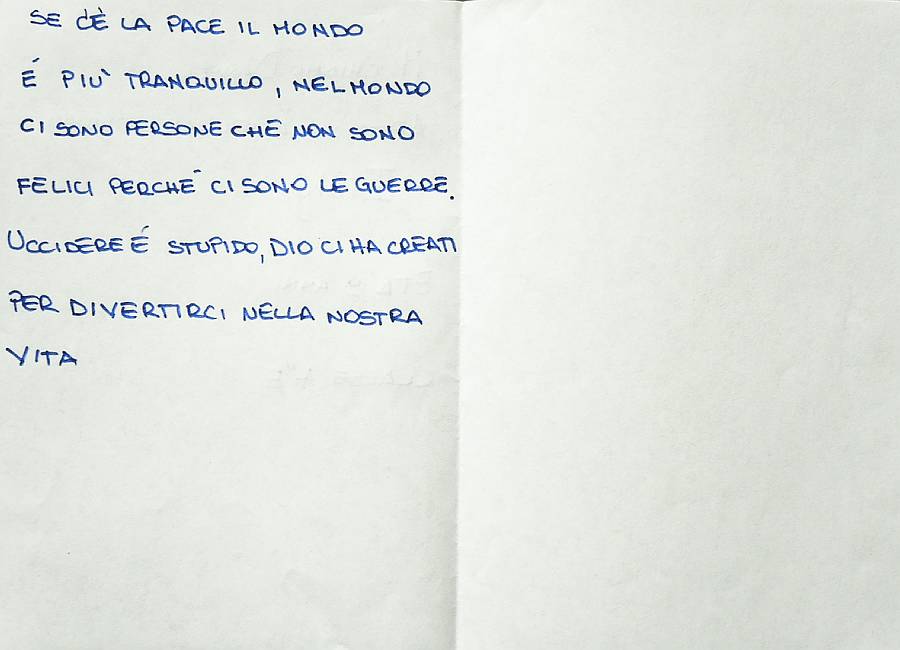 SE C'È LA PACE IL MONDO
É PIÙ TRANQUILLO, NEL MONDO
CI SONO PERSONE CHE NON SONO
FELICI PERCHÉ CI SONO LE GUERRE.
UCCIDERE É STUPIDO, DIO CI HA CREATI
PER DIVERTIRCI NELLA NOSTRA
VITA